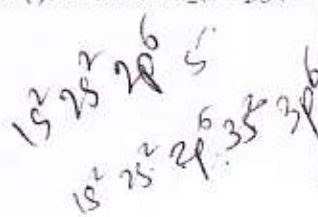 1s² 2s² 2p⁶
1s² 2s² 2p⁶ 3s² 3p⁶